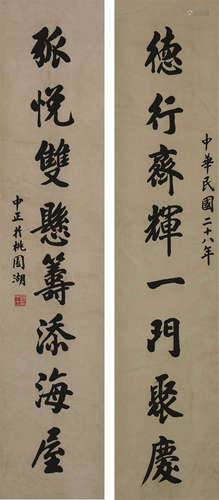 德行齊輝一門聚慶
中華民國二十八年
孤悅雙懸籌添海屋
中正於桃園湖